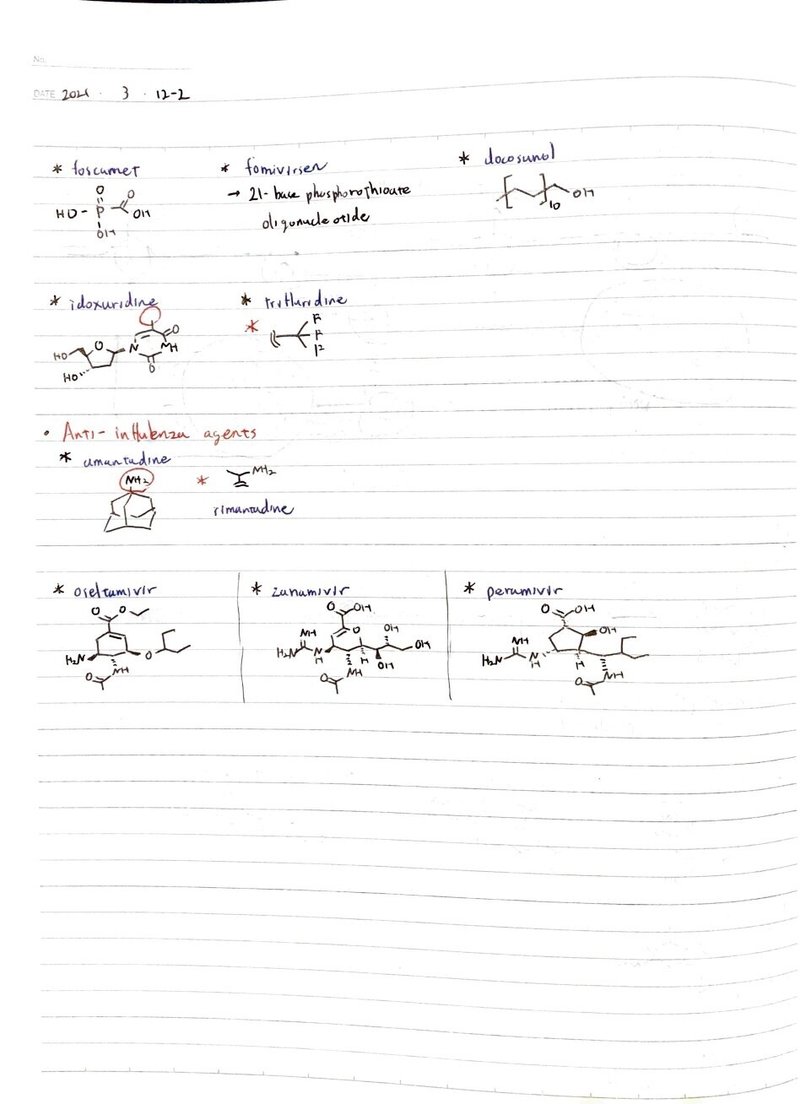 No.
DATE 2021 · 3 · 12-2
* foscarnet
* fomivirsen
* docosanol
→ 21-base phosphorothioate
oligonucleotide
O
O
HO-P
OH
OH
OH
10
* idoxuridine
* trifluridine
*
F
F
F
O
O
N
NH
HO
O
HO
• Anti-influenza agents
* amantadine
NH2
*
NH2
rimantadine
* oseltamivir
* zanamivir
* peramivir
O
O
O
OH
O
OH
NH
O
OH
OH
NH
OH
H2N
O
H2N
N
H
H
OH
H2N
N
H
H
O
NH
O
NH
O
NH